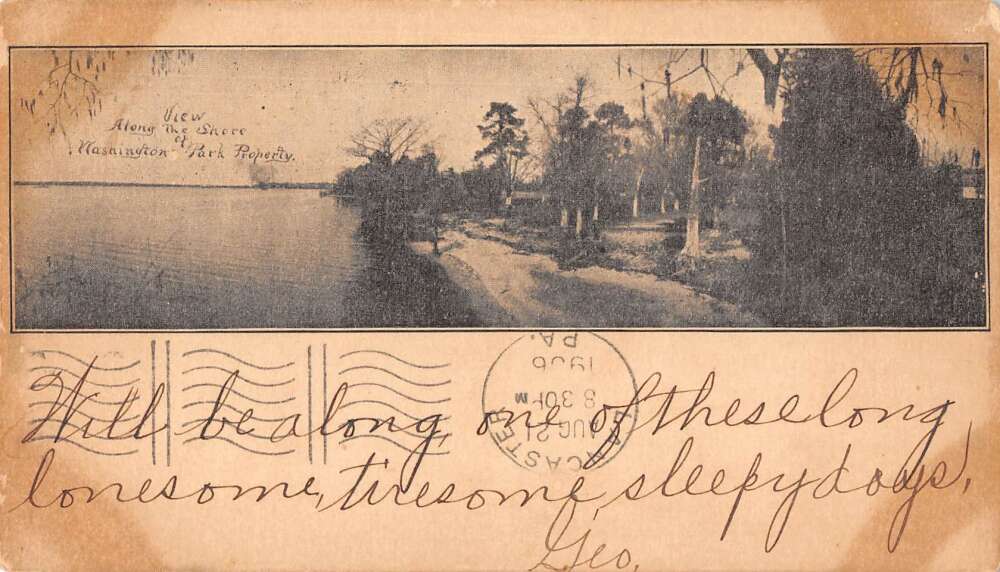 View
Along the Shore
of
Washington Park Property.
LANCASTER
AUG 21
8 30 PM
1906
PA.
Will be along, one of these long,
lonesome, tiresome, sleepy days,
Geo.